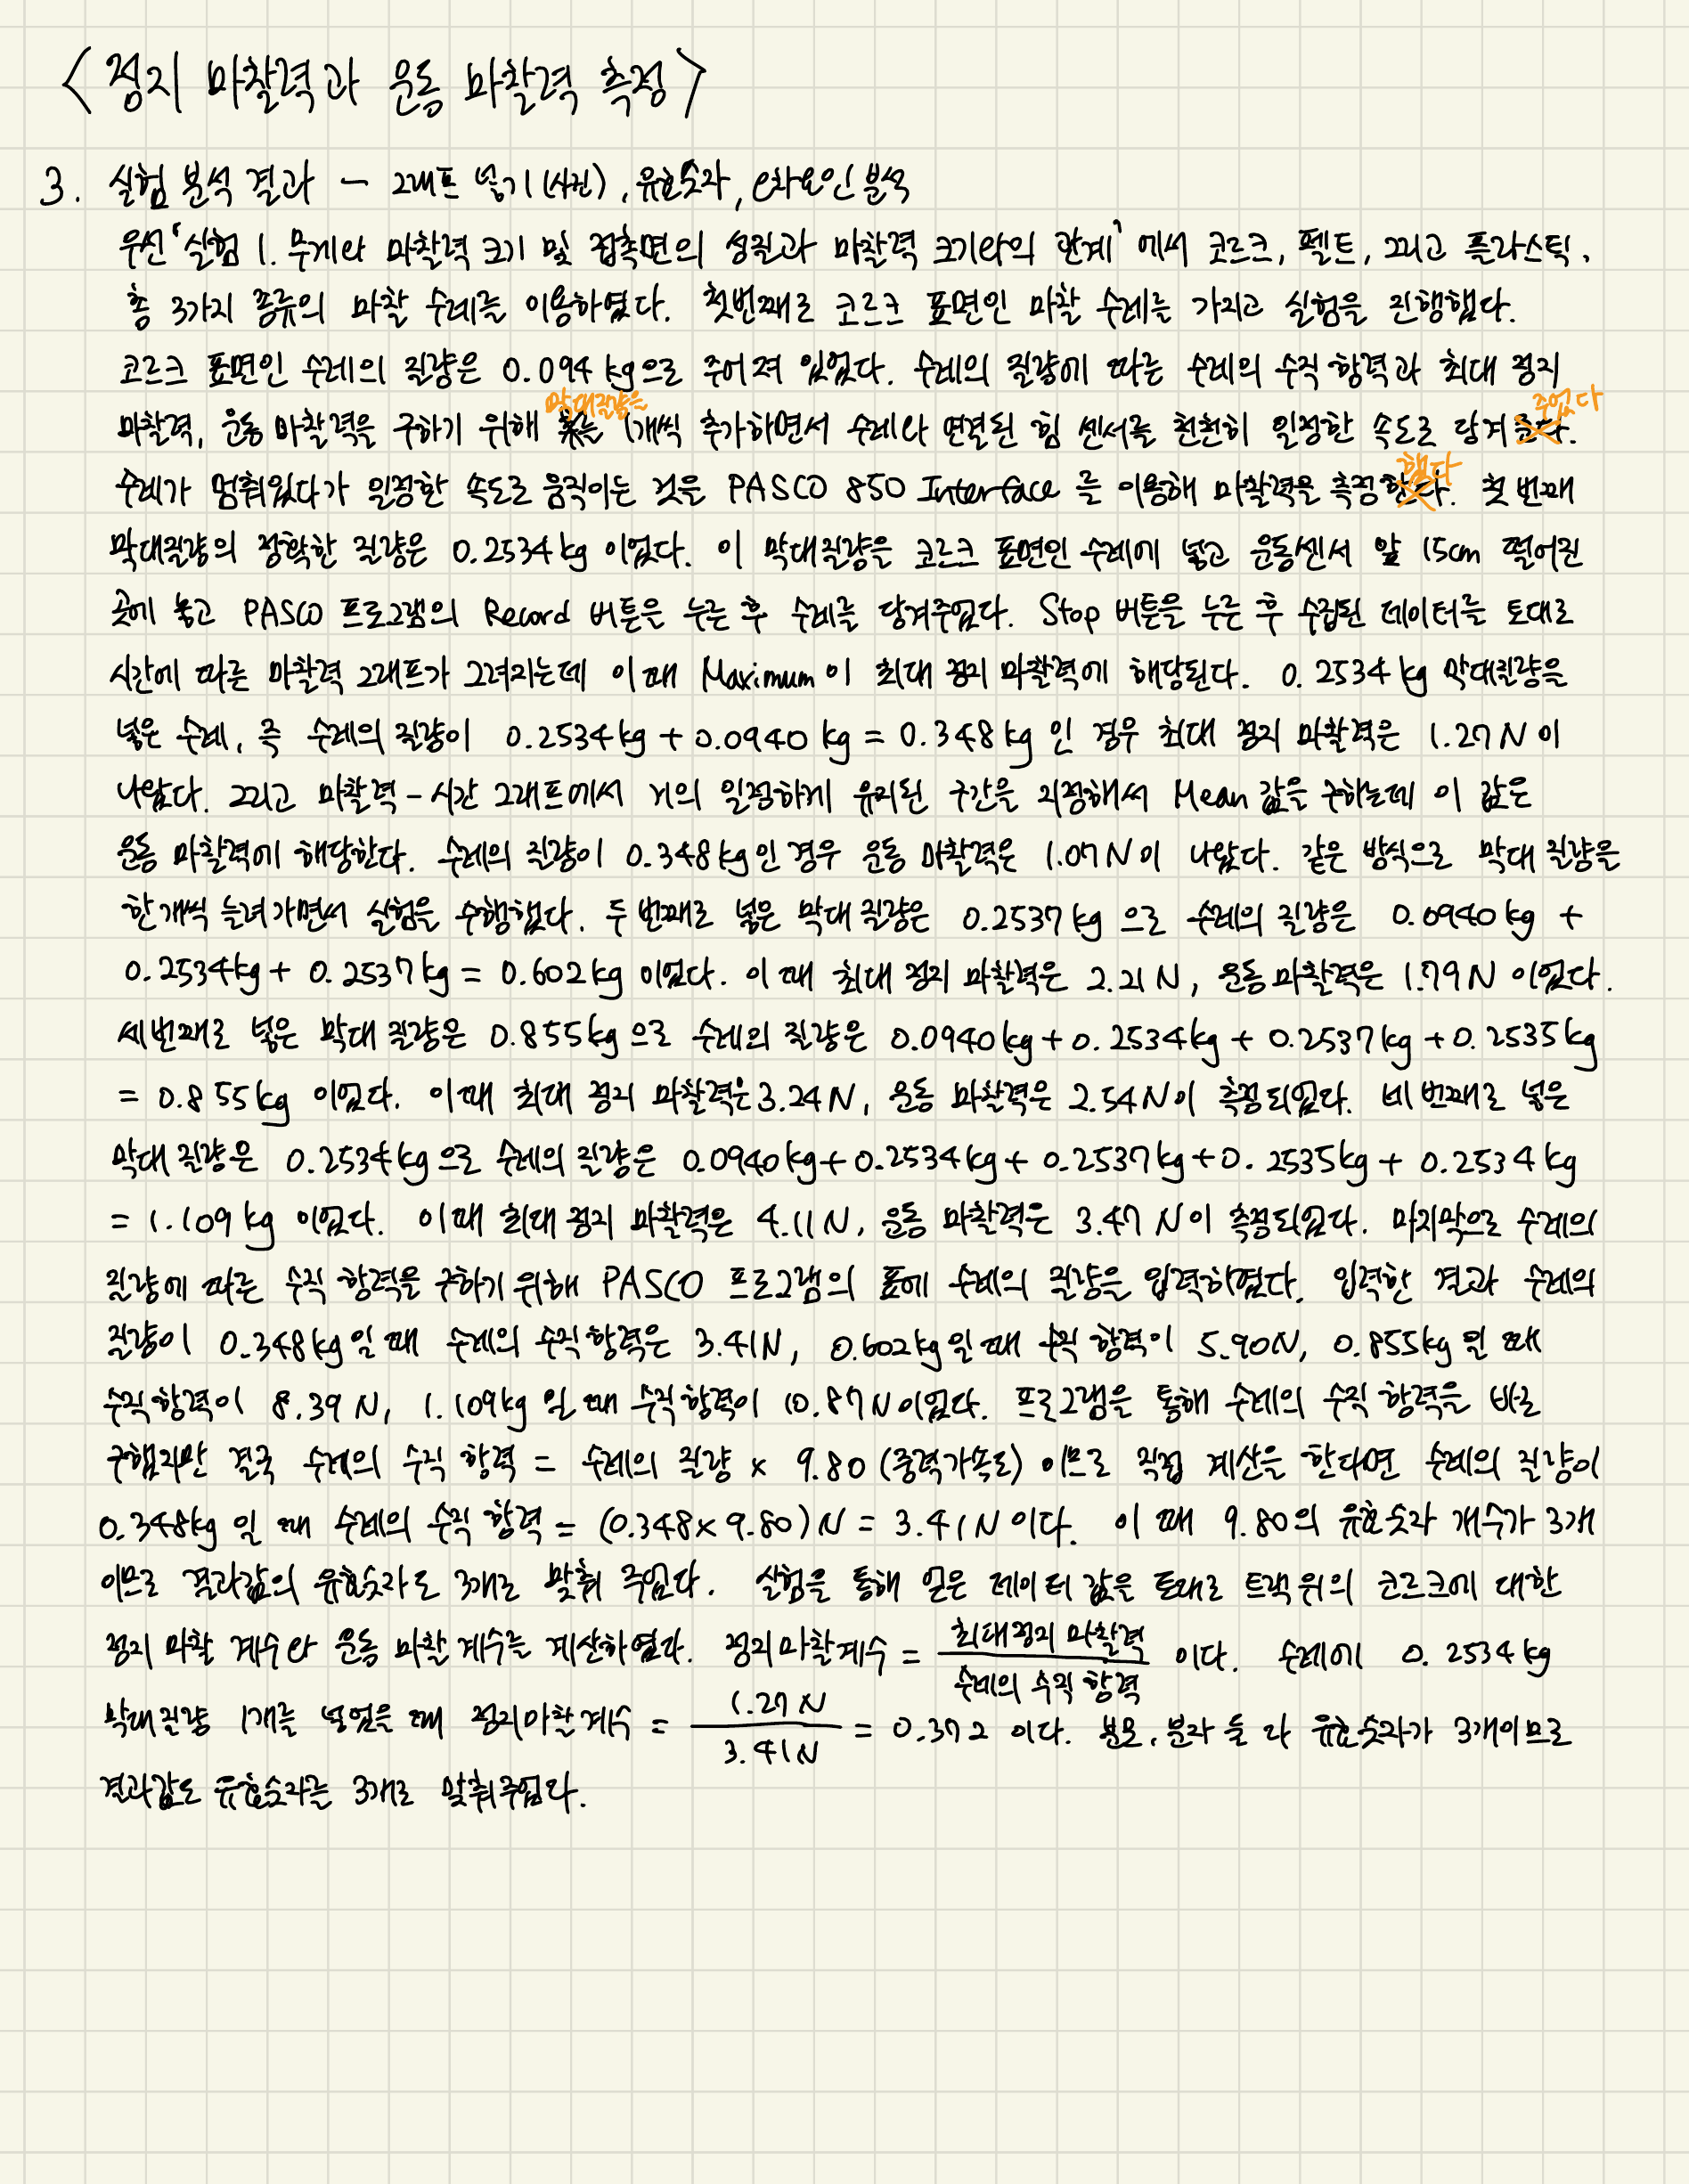 <정지 마찰력과 운동 마찰력 측정>
3. 실험 분석 결과 - 그래프 넣기(사진), 유효숫자, 오차요인 분석
우선 '실험 1. 무게와 마찰력 크기 및 접촉면의 성질과 마찰력 크기와의 관계' 에서 코르크, 펠트, 그리고 플라스틱,
총 3가지 종류의 마찰 수레를 이용하였다. 첫번째로 코르크 표면인 마찰 수레를 가지고 실험을 진행했다.
코르크 표면인 수레의 질량은 0.094 kg으로 주어져 있었다. 수레의 질량에 따른 수레의 수직 항력과 최대 정지
마찰력, 운동 마찰력을 구하기 위해 막대질량을 1개씩 추가하면서 수레와 연결된 힘 센서를 천천히 일정한 속도로 당겨 주었다.
수레가 멈춰있다가 일정한 속도로 움직이는 것을 PASCO 850 Interface 를 이용해 마찰력을 측정했다. 첫 번째
막대질량의 정확한 질량은 0.2534 kg 이었다. 이 막대질량을 코르크 표면인 수레에 넣고 운동센서 앞 15cm 떨어진
곳에 놓고 PASCO 프로그램의 Record 버튼을 누른 후 수레를 당겨주었다. Stop 버튼을 누른 후 수집된 데이터를 토대로
시간에 따른 마찰력 그래프가 그려지는데 이 때 Maximum이 최대 정지 마찰력에 해당된다. 0.2534 kg 막대질량을
넣은 수레, 즉 수레의 질량이 0.2534 kg + 0.0940 kg = 0.348 kg 인 경우 최대 정지 마찰력은 1.27 N 이
나왔다. 그리고 마찰력-시간 그래프에서 거의 일정하게 유지된 구간을 지정해서 Mean 값을 구하는데 이 값은
운동 마찰력에 해당한다. 수레의 질량이 0.348 kg인 경우 운동 마찰력은 1.07 N이 나왔다. 같은 방식으로 막대 질량을
한 개씩 늘려가면서 실험을 수행했다. 두 번째로 넣은 막대 질량은 0.2537 kg 으로 수레의 질량은 0.0940 kg +
0.2534kg + 0.2537kg = 0.602kg 이었다. 이 때 최대 정지 마찰력은 2.21 N, 운동 마찰력은 1.79 N 이었다.
세번째로 넣은 막대 질량은 0.855kg 으로 수레의 질량은 0.0940 kg + 0.2534kg + 0.2537 kg + 0.2535 kg
= 0.855 kg 이었다. 이때 최대 정지 마찰력은 3.24 N, 운동 마찰력은 2.54 N이 측정되었다. 네 번째로 넣은
막대 질량은 0.2534 kg 으로 수레의 질량은 0.0940 kg + 0.2534 kg + 0.2537 kg + 0.2535 kg + 0.2534 kg
= 1.109 kg 이었다. 이때 최대 정지 마찰력은 4.11 N, 운동 마찰력은 3.47 N이 측정되었다. 마지막으로 수레의
질량에 따른 수직 항력을 구하기 위해 PASCO 프로그램의 표에 수레의 질량을 입력하였다. 입력한 결과 수레의
질량이 0.348kg 일 때 수레의 수직항력은 3.41N, 0.602kg일 때 수직 항력이 5.90N, 0.855kg 일 때
수직항력이 8.39 N, 1.109kg 일 때 수직항력이 10.87N이었다. 프로그램을 통해 수레의 수직 항력을 바로
구했지만 결국 수레의 수직 항력 = 수레의 질량 × 9.80 (중력가속도) 이므로 직접 계산을 한다면 수레의 질량이
0.348kg 일 때 수레의 수직 항력 = (0.348 × 9.80) N = 3.41N 이다. 이 때 9.80의 유효숫자 개수가 3개
이므로 결과값의 유효숫자도 3개로 맞춰 주었다. 실험을 통해 얻은 데이터 값을 토대로 트랙 위의 코르크에 대한
정지 마찰 계수와 운동 마찰 계수를 계산하였다. 정지마찰계수 = 최대정지 마찰력 / 수레의 수직 항력 이다. 수레에 0.2534 kg
막대질량 1개를 넣었을 때 정지마찰계수 = 1.27 N / 3.41N = 0.372 이다. 분모, 분자 둘 다 유효숫자가 3개이므로
결과값도 유효숫자를 3개로 맞춰주었다.